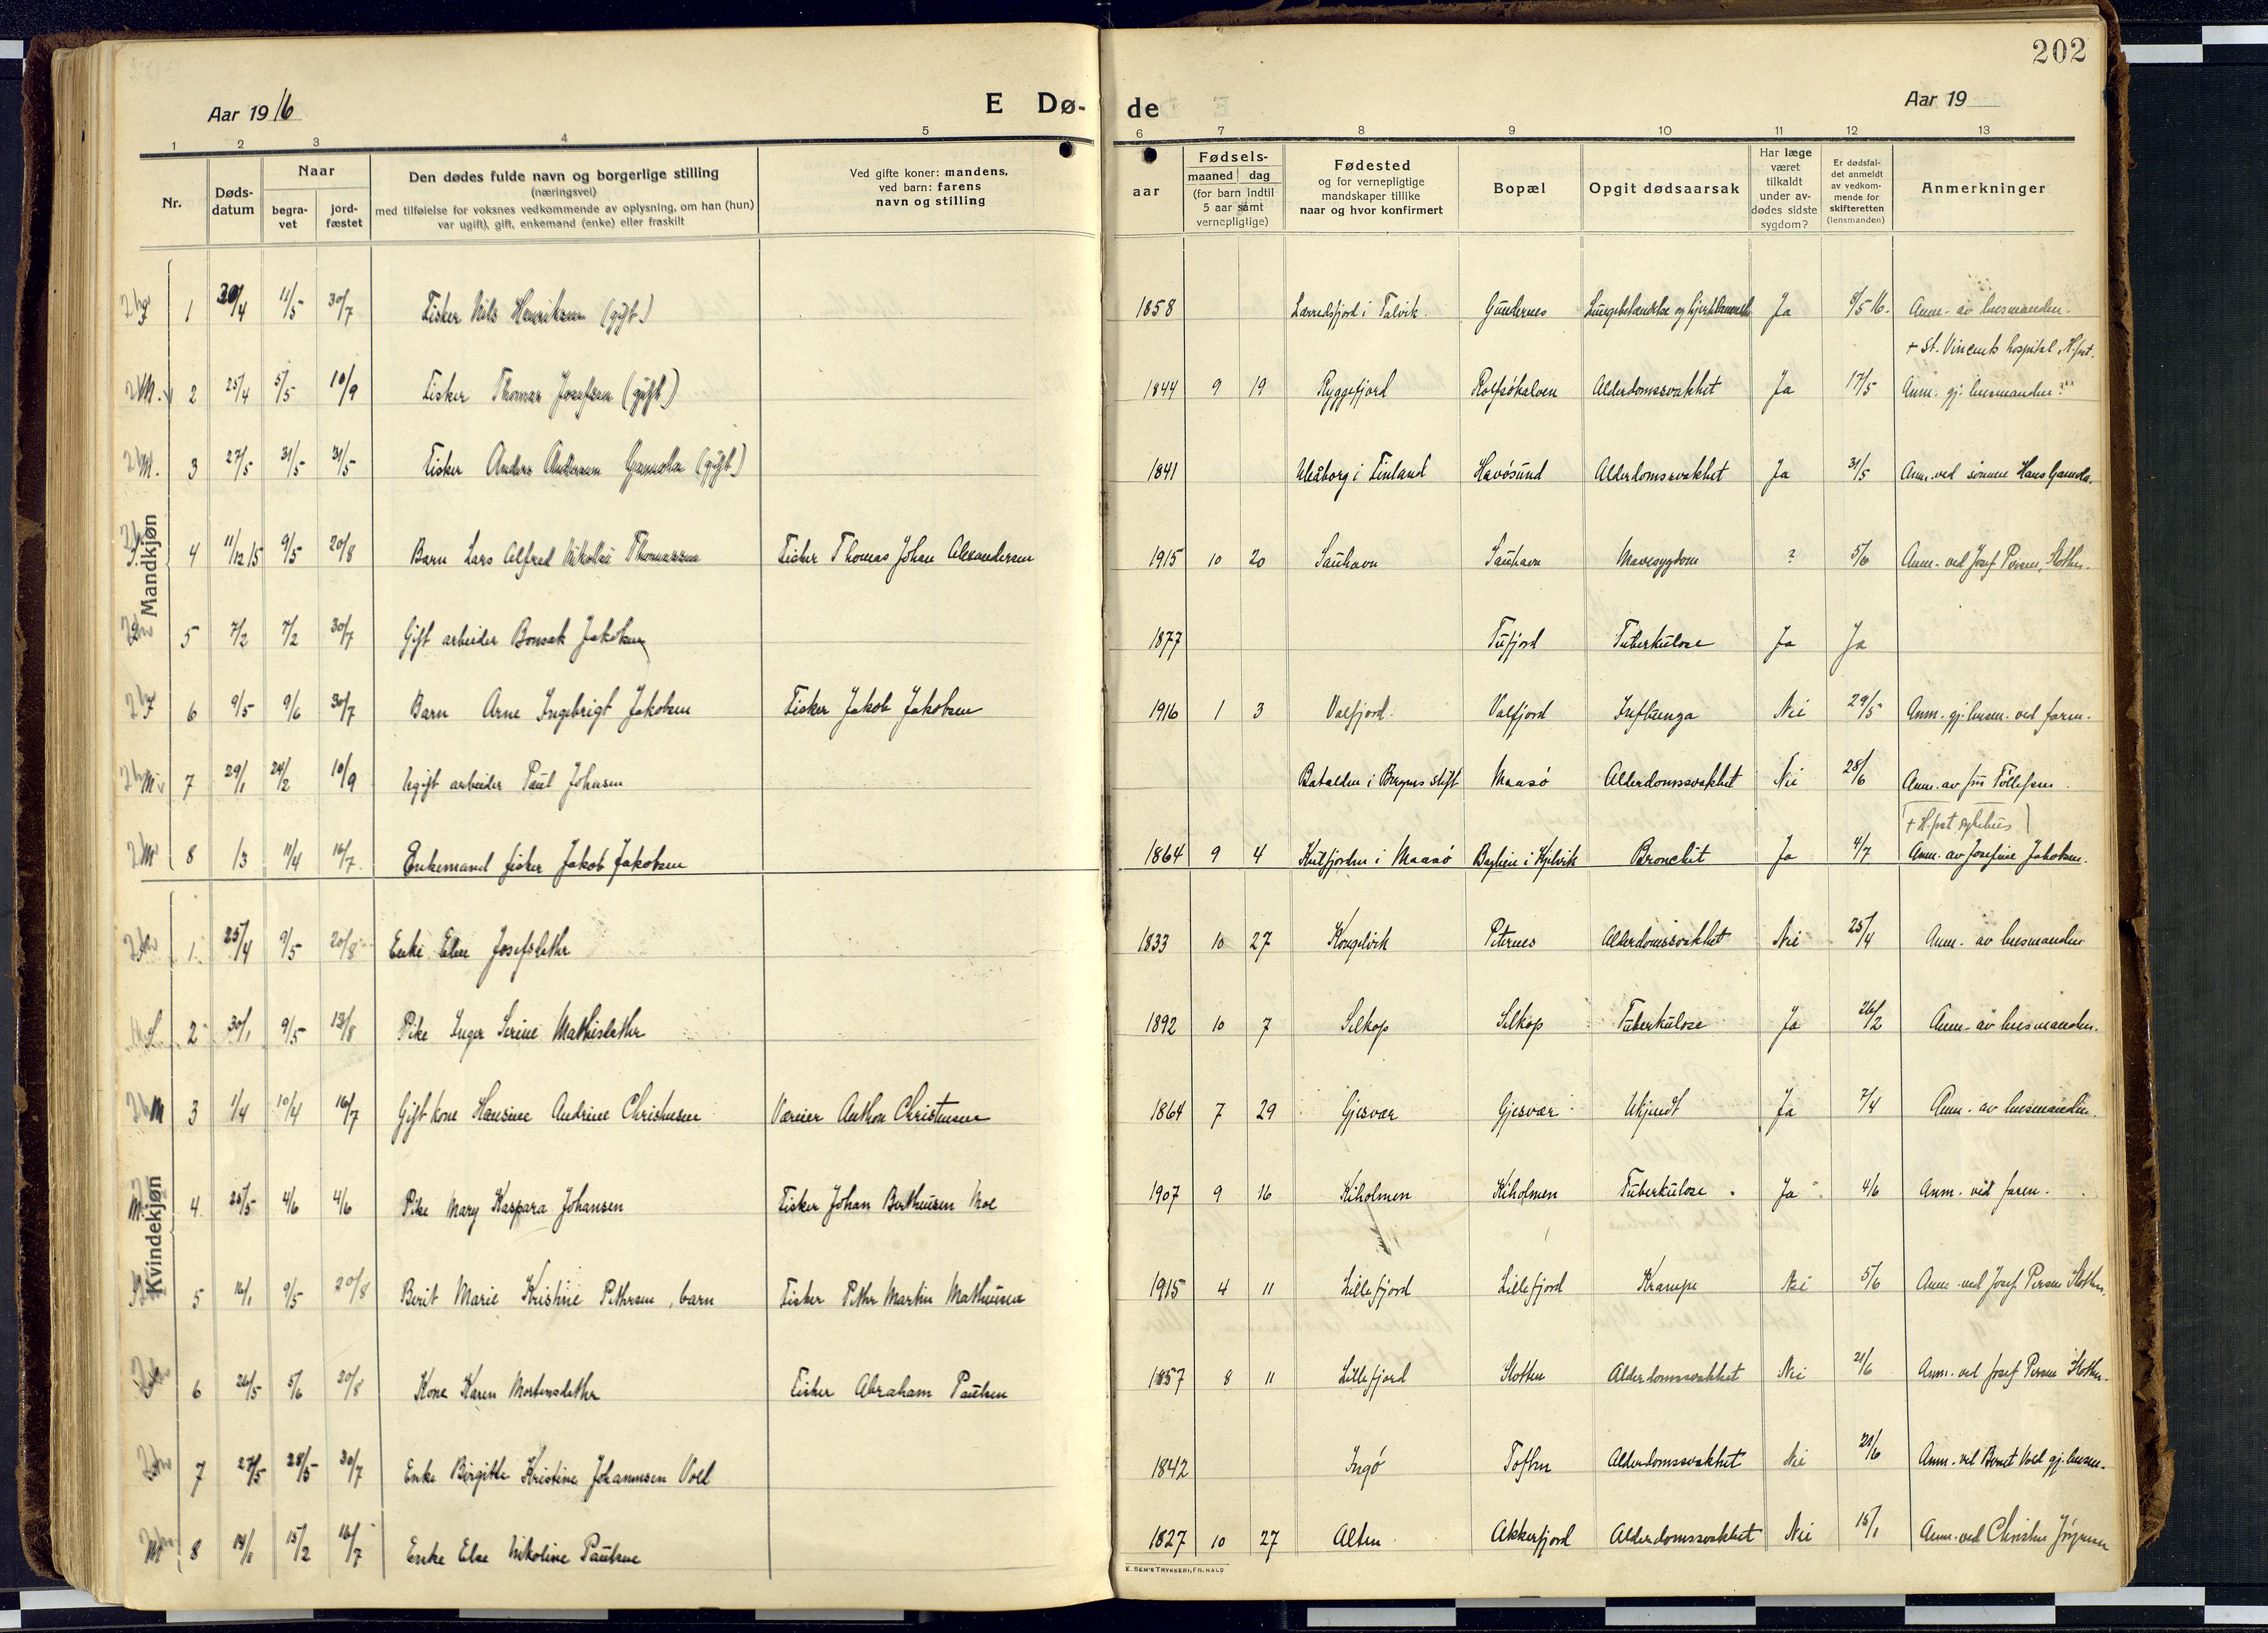 202
Aar 1916
E Dø-
de
Aar 19
1 2 3 4 5 6 7 8 9 10 11 12 13
Nr.
Døds-
datum
Naar
begra-
vet
jord-
fæstet
Den dødes fulde navn og borgerlige stilling
(næringsvei)
med tilføielse for voksnes vedkommende av oplysning, om han (hun)
var ugift), gift, enkemand (enke) eller fraskilt
Ved gifte koner: mandens,
ved barn: farens
navn og stilling
aar
Fødsels-
maaned dag
(for barn indtil
5 aar samt
vernepligtige)
Fødested
og for vernepligtige
mandskaper tillike
naar og hvor konfirmert
Bopæl
Opgit dødsaarsak
Har læge
været
tilkaldt
under av-
dødes sidste
sygdom?
Er dødsfal-
det anmeldt
av vedkom-
mende for
skifteretten
(lensmanden)
Anmerkninger
Mandkjøn
1 30/4 11/5 30/7 Fisker Nils Henriksen (gift) 1858 i Talvik Gundernes Lungebetændelse og Ja 8/5 16. Anm. av lensmanden.
+ St. Vincents hospital, H.fest.
2 25/4 5/5 10/9 Fisker Thomas Josefsen (gift) 1844 9 19 Ryggefjord Rolfsøhalven Alderdomssvakhet Ja 17/5 Anm. gj. lensmanden
3 27/5 31/5 31/5 Fisker Anders Andersen Gamola (gift) 1841 Uleåborg i Finland Havøsund Alderdomssvakhet Ja 31/5 Anm. ved sønnen Hans Gamola.
4 11/12 15 9/5 20/8 Barn Lars Alfred Nikolai Thomassen Fisker Thomas Johan Alexandersen 1915 10 20 Sauhavn Sauhavn Mavesygdom ? 5/6 Anm. ved Josef Persen, Slotten.
5 7/2 7/2 30/7 Gift arbeider Bonsak Jakobsen 1877 Tufjord Tuberkulose Ja Ja
6 9/5 9/6 30/7 Barn Arne Ingebrigt Jakobsen Fisker Jakob Jakobsen 1916 1 3 Valfjord. Valfjord Influenza Nei 29/5 Anm. gj. lensm. ved faren.
7 29/1 24/2 10/9 Ugift arbeider Paul Johnsen Batalden i Bergens stift Maasø Alderdomssvakhet Nei 28/6 Anm. av fru Tollefsen.
+ H.fest sykehus
8 /3 11/4 16/7 Enkemand fisker Jakob Jakobsen 1864 9 4 Kulfjorden i Maasø i Kjelvik Bronchit Ja 4/7 Anm. av Josefine Jakobsen.
Kvindekjøn
1 25/4 9/5 20/8 Enke Elen Josefsdatter 1833 10 27 Kongelvik Peternes Alderdomssvakhet Nei 25/4 Anm. av lensmanden
2 30/1 9/5 13/8 Pike Inger Serine Mathisdatter 1892 10 7 Selkop Selkop Tuberkulose Ja 26/2 Anm. av lensmanden.
3 1/4 10/4 16/7 Gift kone Hansine Andrine Christensen Væreier Anthon Christensen 1864 7 29 Gjesvær Gjesvær Ukjendt Ja 7/4 Anm. av lensmanden.
4 25/5 4/6 4/6 Pike Mary Kaspara Johansen Fisker Johan Bertheusen Moe 1907 9 16 Kiholmen Kiholmen Tuberkulose. Ja 4/6 Anm. ved faren.
5 16/1 9/5 20/8 Berit Marie Kristine Pettersen, barn Fisker Petter Martin Matheusen 1915 4 11 Lillefjord Lillefjord Krampe Nei 5/6 Anm. ved Josef Persen Slotten.
6 26/5 5/6 20/8 Kone Karen Mortensdatter Fisker Abraham Paulsen 1857 8 11 Lillefjord Slotten Alderdomssvakhet Nei 21/6 Anm. ved Josef Persen Slotten.
7 27/5 28/5 30/7 Enke Birgitte Kristine Johannesen Voll 1842 Ingø Toften Alderdomssvakhet Nei 21/6 Anm. ved Beret Voll gj. lensm.
8 14/1 15/2 16/7 Enke Else Nikoline Paulsen 1827 10 27 Alten Akkerfjord Alderdomssvakhet Nei 15/1 Anm. ved Christen Jörgensen
E. SEM'S TRYKKERI, FR.HALD